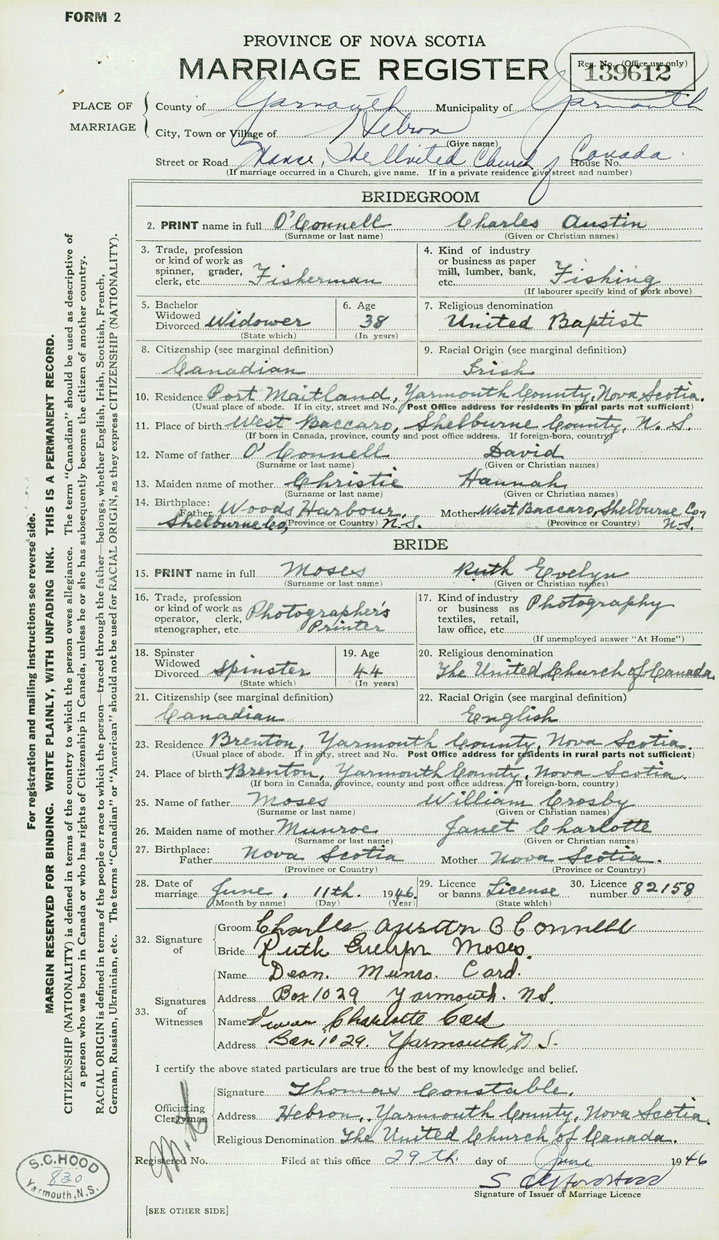 FORM 2
PROVINCE OF NOVA SCOTIA
MARRIAGE REGISTER
Reg. No. (Office use only)
139612
PLACE OF MARRIAGE
County of Yarmouth Municipality of Yarmouth
City, Town or Village of Hebron
(Give name)
Street or Road Manse, The United Church of Canada House No.
(If marriage occurred in a Church, give name. If in a private residence give street and number)
BRIDEGROOM
2. PRINT name in full O'Connell Charles Austin
(Surname or last name) (Given or Christian names)
3. Trade, profession or kind of work as spinner, grader, clerk, etc. Fisherman
4. Kind of industry or business as paper mill, lumber, bank, etc. Fishing
(If labourer specify kind of work above)
5. Bachelor Widowed Divorced Widower
(State which)
6. Age 38
(In years)
7. Religious denomination
United Baptist
8. Citizenship (see marginal definition)
Canadian
9. Racial Origin (see marginal definition)
Irish
10. Residence Port Maitland, Yarmouth County, Nova Scotia.
(Usual place of abode. If in city, street and No. Post Office address for residents in rural parts not sufficient)
11. Place of birth West Baccaro, Shelburne County, N.S.
(If born in Canada, province, county and post office address. If foreign-born, country)
12. Name of father O'Connell David
(Surname or last name) (Given or Christian names)
13. Maiden name of mother Christie Hannah
(Surname or last name) (Given or Christian names)
14. Birthplace: Father Woods Harbour, Shelburne Co, N.S. Mother West Baccaro, Shelburne Co, N.S.
(Province or Country) (Province or Country)
BRIDE
15. PRINT name in full Moses Ruth Evelyn
(Surname or last name) (Given or Christian names)
16. Trade, profession or kind of work as operator, clerk, stenographer, etc. Photographer's Printer
17. Kind of industry or business as textiles, retail, law office, etc. Photography
(If unemployed answer "At Home")
18. Spinster Widowed Divorced Spinster
(State which)
19. Age 44
(In years)
20. Religious denomination
The United Church of Canada.
21. Citizenship (see marginal definition)
Canadian
22. Racial Origin (see marginal definition)
English
23. Residence Brenton, Yarmouth County, Nova Scotia.
(Usual place of abode. If in city, street and No. Post Office address for residents in rural parts not sufficient)
24. Place of birth Brenton, Yarmouth County, Nova Scotia.
(If born in Canada, province, county and post office address. If foreign-born, country)
25. Name of father Moses William Crosby
(Surname or last name) (Given or Christian names)
26. Maiden name of mother Munroe Janet Charlotte
(Surname or last name) (Given or Christian names)
27. Birthplace: Father Nova Scotia Mother Nova Scotia.
(Province or Country) (Province or Country)
28. Date of marriage June, 11th. 1946.
(Month by name) (Day) (Year)
29. Licence or banns License
(State which)
30. Licence number 82158
32. Signature of
Groom Charles Austin O Connell
Bride Ruth Evelyn Moses.
33. Signatures of Witnesses
Name Dean. Munro. Card.
Address Box 1029 Yarmouth. NS.
Name Charlotte Card
Address Box 1029. Yarmouth, N S.
I certify the above stated particulars are true to the best of my knowledge and belief.
Officiating Clergyman
Signature Thomas Constable.
Address Hebron, Yarmouth County, Nova Scotia.
Religious Denomination The United Church of Canada.
Registered No. Filed at this office 29th day of June 1946
Signature of Issuer of Marriage Licence
[SEE OTHER SIDE]
S.C. HOOD
830
Yarmouth, N.S.
For registration and mailing instructions see reverse side.
MARGIN RESERVED FOR BINDING. WRITE PLAINLY, WITH UNFADING INK. THIS IS A PERMANENT RECORD.
CITIZENSHIP (NATIONALITY) is defined in terms of the country to which the person owes allegiance. The term "Canadian" should be used as descriptive of
a person who was born in Canada or who has rights of Citizenship in Canada, unless he or she has subsequently become the citizen of another country.
RACIAL ORIGIN is defined in terms of the people or race to which the person—traced through the father—belongs, whether English, Irish, Scottish, French,
German, Russian, Ukrainian, etc. The terms "Canadian" or "American" should not be used for RACIAL ORIGIN, as they express CITIZENSHIP (NATIONALITY).